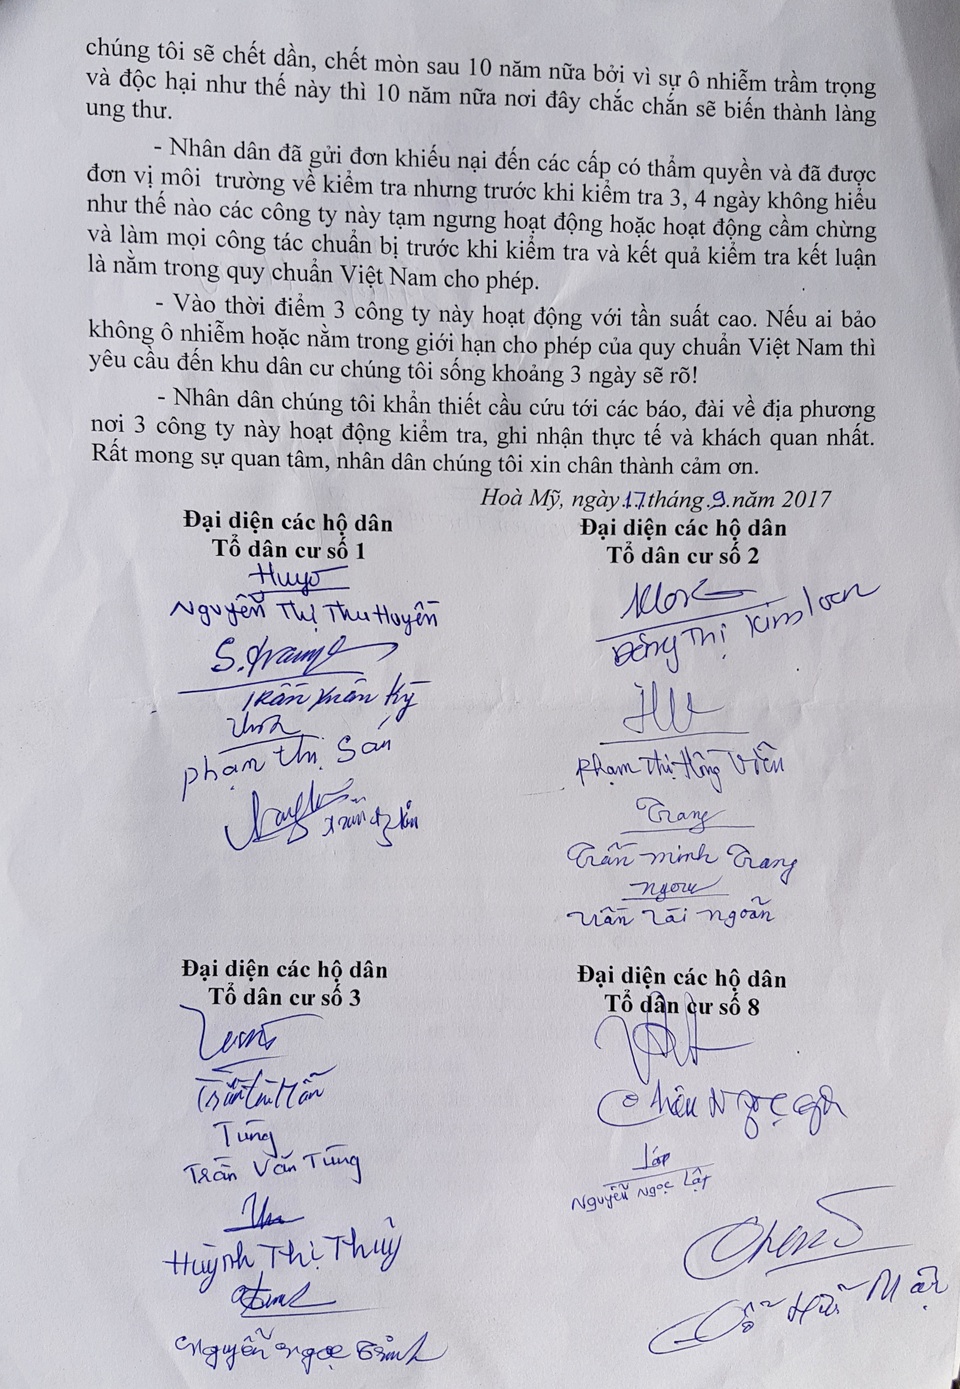 chúng tôi sẽ chết dần, chết mòn sau 10 năm nữa bởi vì sự ô nhiễm trầm trọng
và độc hại như thế này thì 10 năm nữa nơi đây chắc chắn sẽ biến thành làng
ung thư.
- Nhân dân đã gửi đơn khiếu nại đến các cấp có thẩm quyền và đã được
đơn vị môi trường về kiểm tra nhưng trước khi kiểm tra 3, 4 ngày không hiểu
như thế nào các công ty này tạm ngưng hoạt động hoặc hoạt động cầm chừng
và làm mọi công tác chuẩn bị trước khi kiểm tra và kết quả kiểm tra kết luận
là nằm trong quy chuẩn Việt Nam cho phép.
- Vào thời điểm 3 công ty này hoạt động với tần suất cao. Nếu ai bảo
không ô nhiễm hoặc nằm trong giới hạn cho phép của quy chuẩn Việt Nam thì
yêu cầu đến khu dân cư chúng tôi sống khoảng 3 ngày sẽ rõ!
- Nhân dân chúng tôi khẩn thiết cầu cứu tới các báo, đài về địa phương
nơi 3 công ty này hoạt động kiểm tra, ghi nhận thực tế và khách quan nhất.
Rất mong sự quan tâm, nhân dân chúng tôi xin chân thành cảm ơn.
Hoà Mỹ, ngày 17 tháng 9 năm 2017
Đại diện các hộ dân
Tổ dân cư số 1
Nguyễn Thị Thu Huyền
Trần Xuân Kỳ
Phạm Thị Sáu
Đại diện các hộ dân
Tổ dân cư số 2
Đặng Thị Kim Loan
Phạm Thị Hồng Viên
Trang
Trần Minh Trang
Trần Tài Ngoãn
Đại diện các hộ dân
Tổ dân cư số 3
Tùng
Trần Văn Tùng
Huỳnh Thị Thuỷ
Nguyễn Ngọc
Đại diện các hộ dân
Tổ dân cư số 8
Ngọc
Nguyễn Ngọc Lập
Hữu